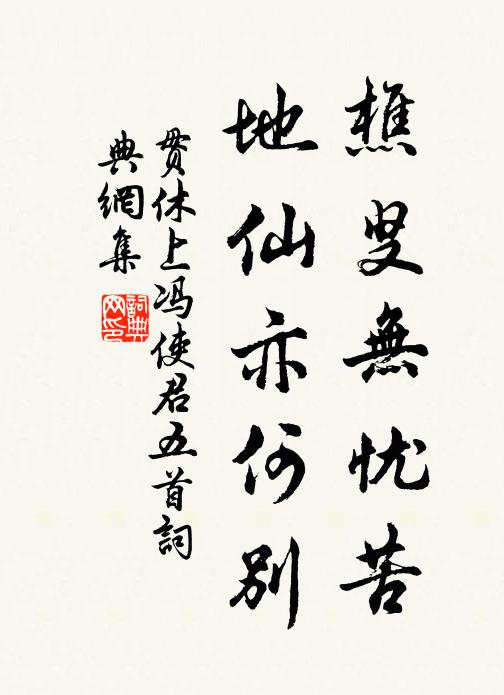 樵叟無忧苦
地仙亦何别
贯休上冯使君五首詞
典網集
詞典网印